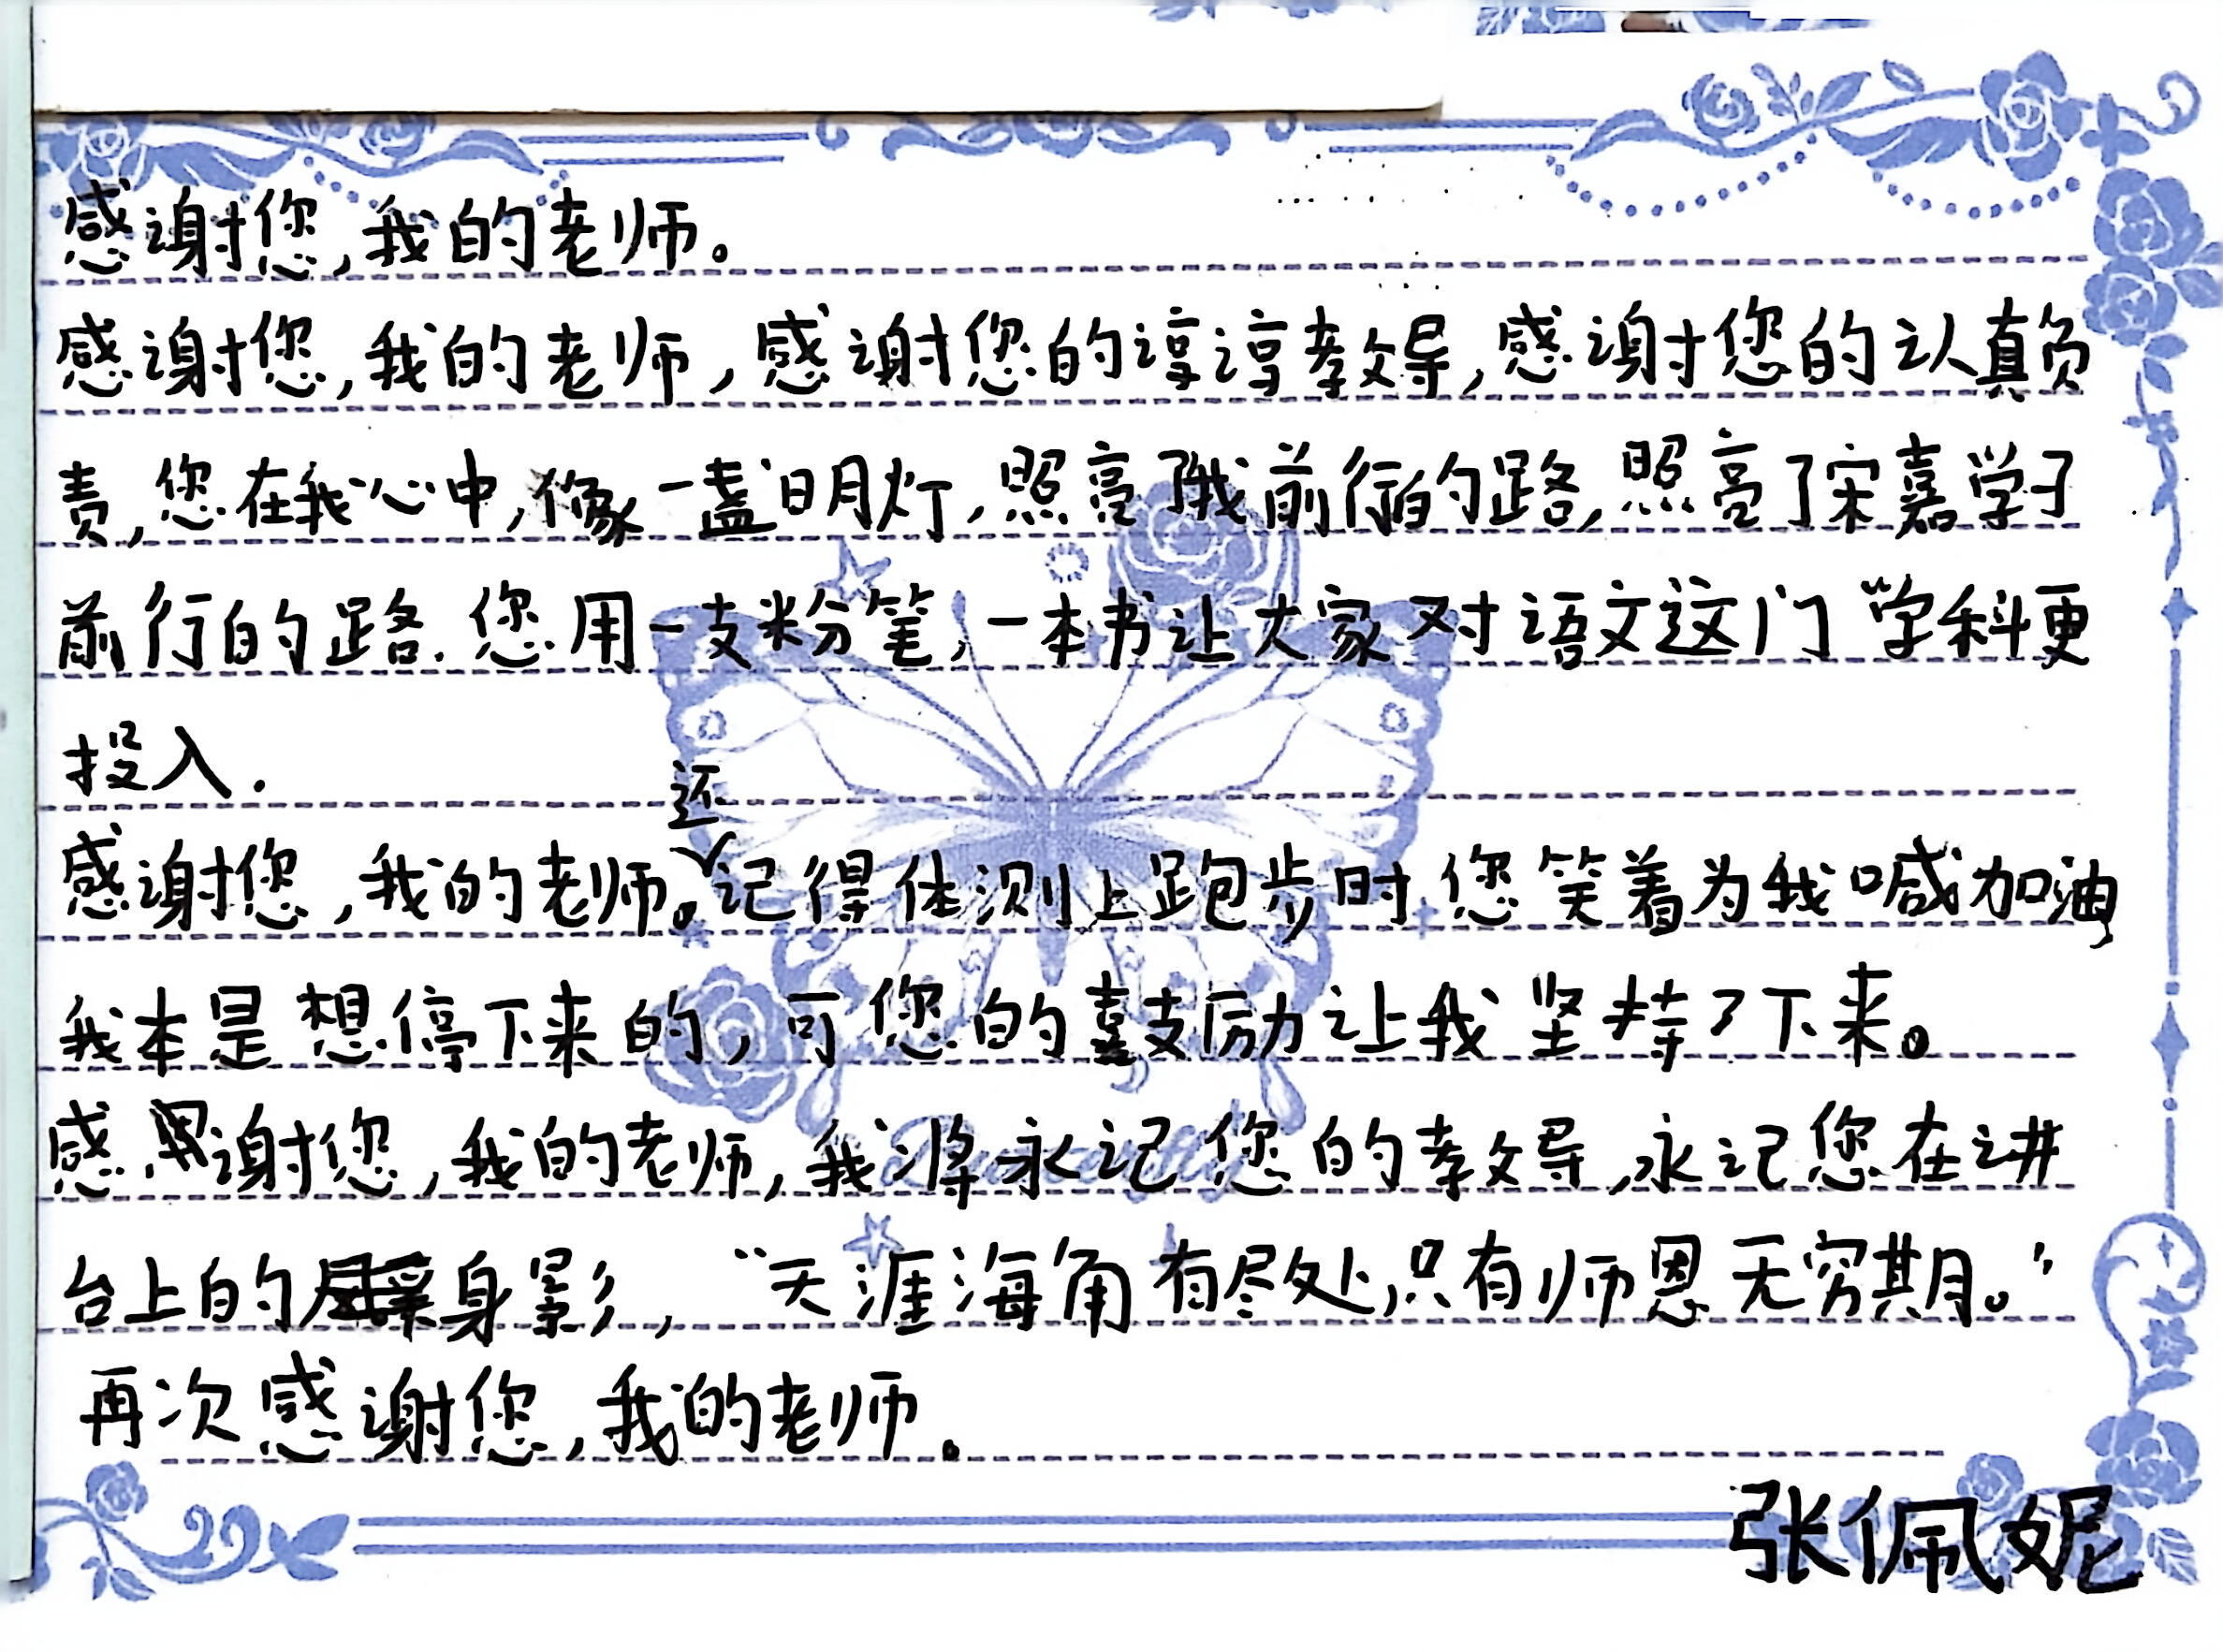 感谢您,我的老师。
感谢您,我的老师,感谢您的谆谆教导,感谢您的认真负
责,您在我心中,像一盏明灯,照亮了我前行的路,照亮了宋嘉学子
前行的路.您用一支粉笔,一本书让大家对语文这门学科更
投入.
感谢您,我的老师。还记得体测上跑步时,您笑着为我喊加油,
我本是想停下来的,可您的鼓励让我坚持了下来。
感谢您,我的老师,我将永记您的教导,永记您在讲
台上的身影,“天涯海角有尽处,只有师恩无穷期。”
再次感谢您,我的老师.
张佩妮